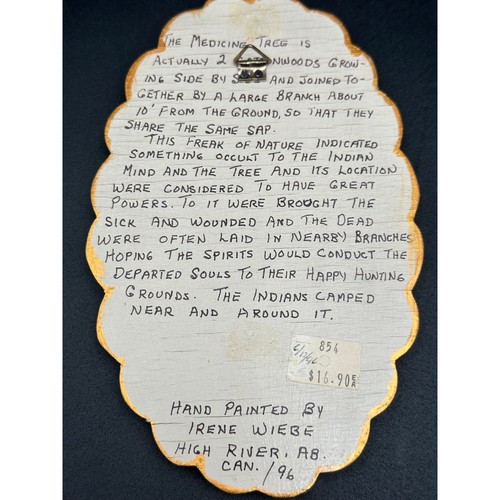 THE MEDICINE TREE IS
ACTUALLY 2 NWOODS GROW-
ING SIDE BY AND JOINED TO-
GETHER BY A LARGE BRANCH ABOUT
10' FROM THE GROUND, SO THAT THEY
SHARE THE SAME SAP.
THIS FREAK OF NATURE INDICATED
SOMETHING OCCULT TO THE INDIAN
MIND AND THE TREE AND ITS LOCATION
WERE CONSIDERED TO HAVE GREAT
POWERS. TO IT WERE BROUGHT THE
SICK AND WOUNDED AND THE DEAD
WERE OFTEN LAID IN NEARBY BRANCHES
HOPING THE SPIRITS WOULD CONDUCT THE
DEPARTED SOULS TO THEIR HAPPY HUNTING
GROUNDS. THE INDIANS CAMPED
NEAR AND AROUND IT.
854
$16.90 EA
HAND PAINTED BY
IRENE WIEBE
HIGH RIVER, AB.
CAN. /96